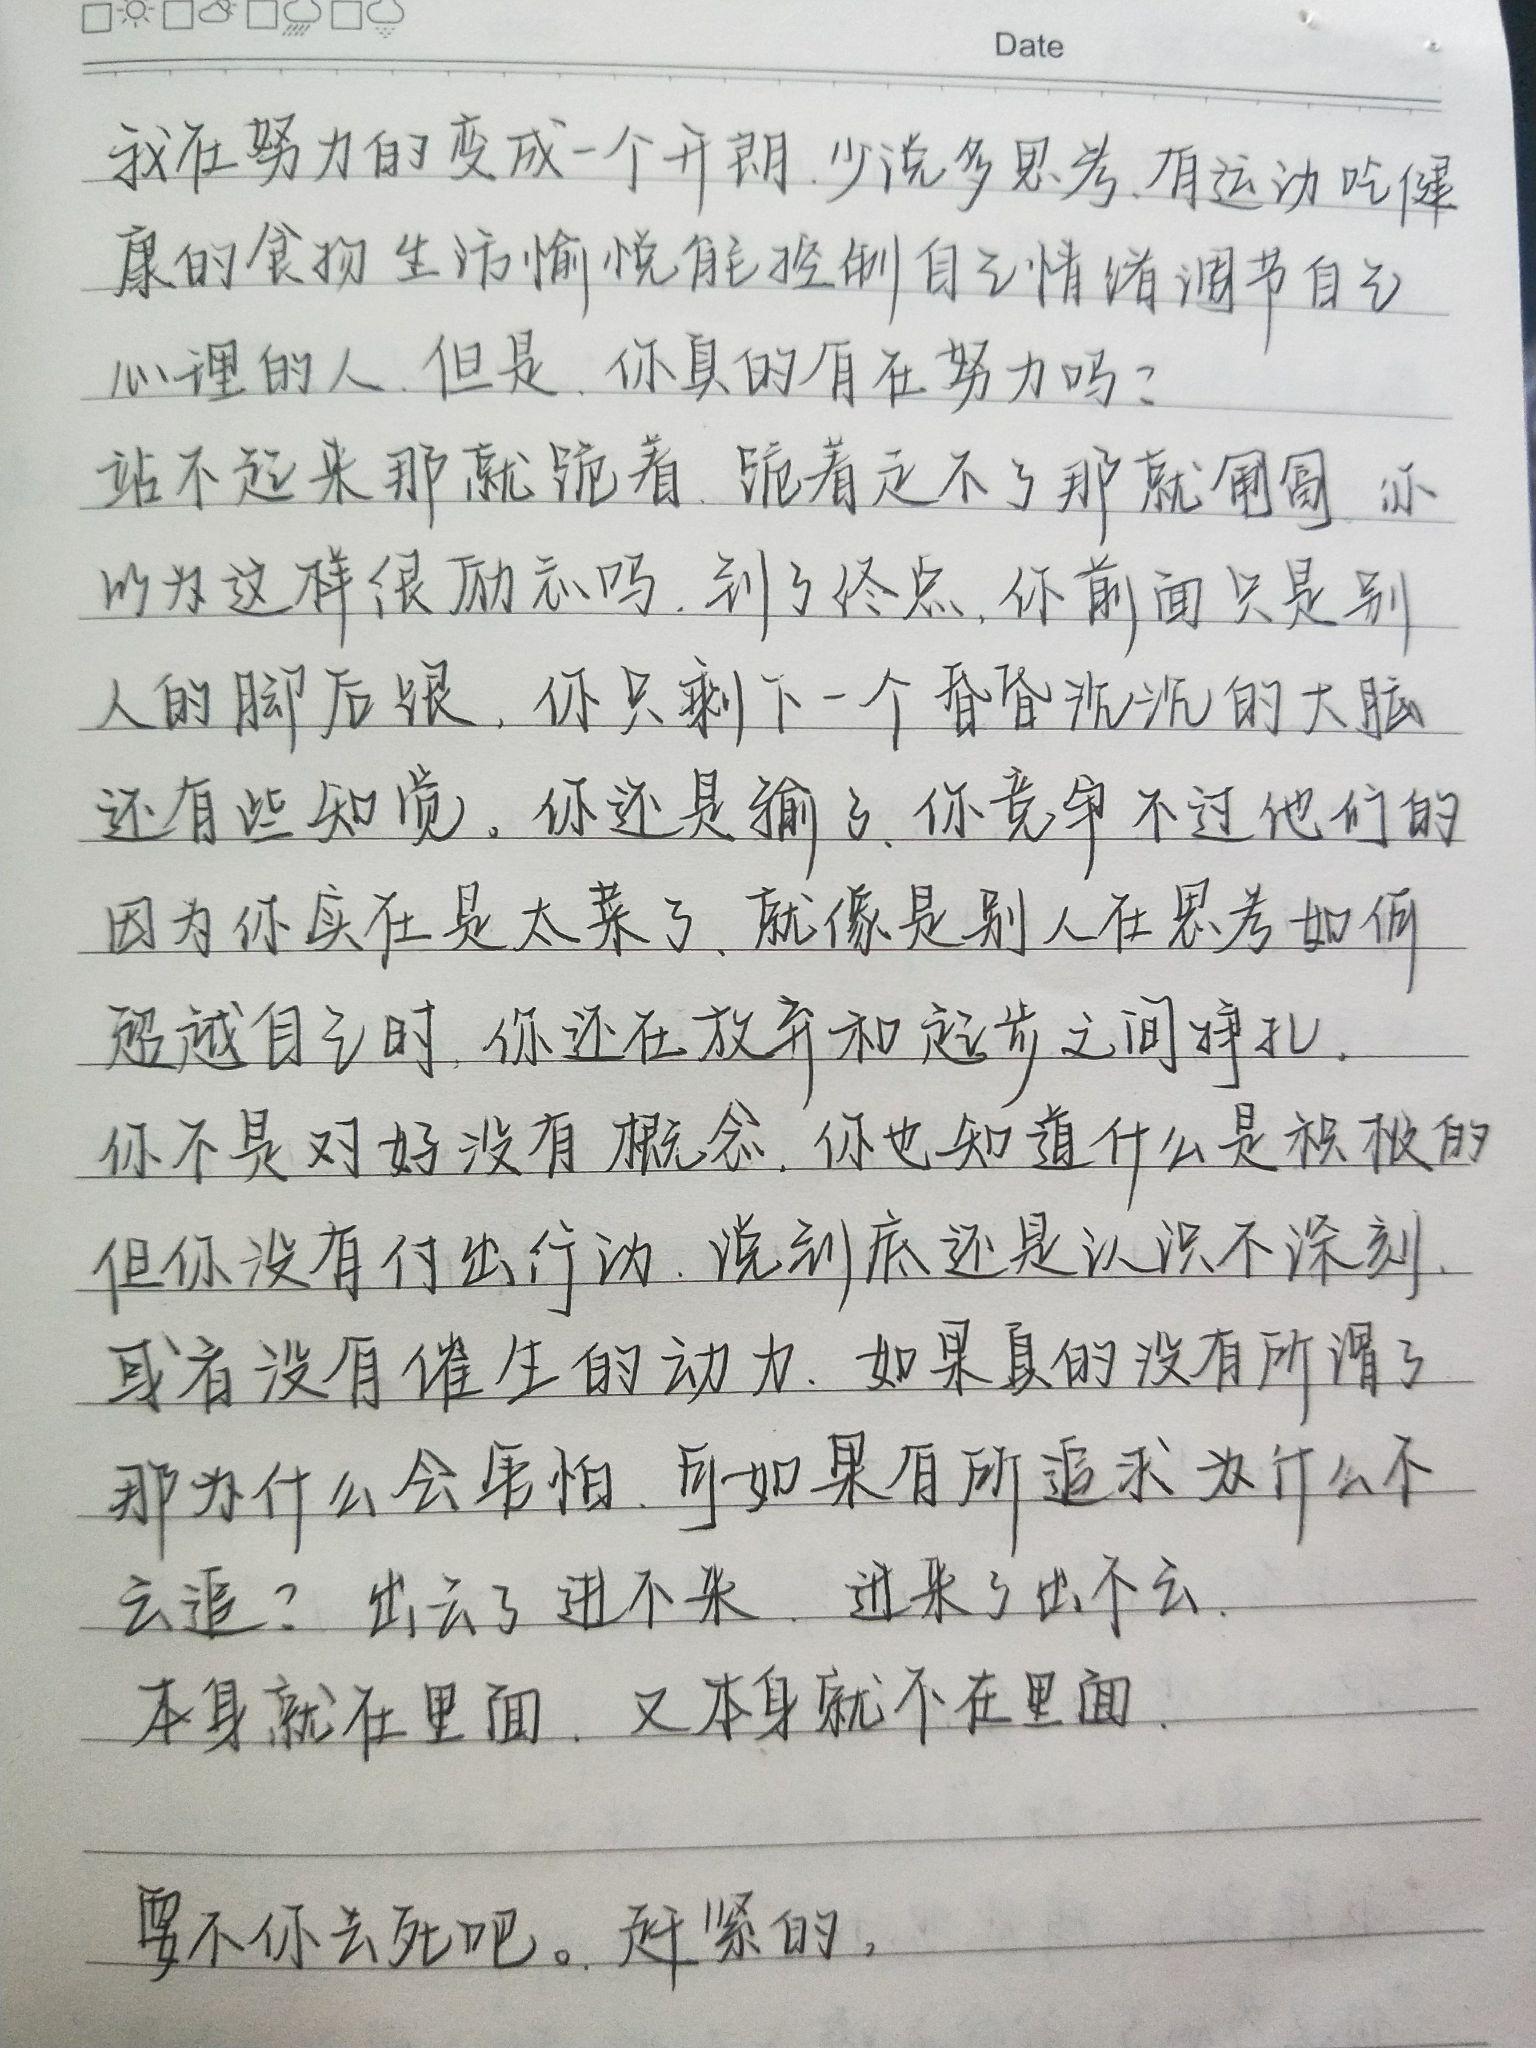 Date
我在努力的变成一个开朗、少说多思考、有运动吃健
康的食物生活愉悦能控制自己情绪调节自己
心理的人、但是、你真的有在努力吗？
站不起来那就跪着、跪着走不了那就匍匐、你
以为这样很励志吗、到了终点、你前面只是别
人的脚后跟、你只剩下一个昏昏沉沉的大脑
还有些知觉。你还是输了、你竞争不过他们的
因为你实在是太菜了、就像是别人在思考如何
超越自己时、你还在放弃和起步之间挣扎、
你不是对好没有概念、你也知道什么是积极的
但你没有付出行动、说到底还是认识不深刻、
或者没有催生的动力、如果真的没有所谓了
那为什么会害怕、如果有所追求为什么不
去追？出去了进不来、进来了出不去、
本身就在里面、又本身就不在里面、
要不你去死吧。赶紧的，